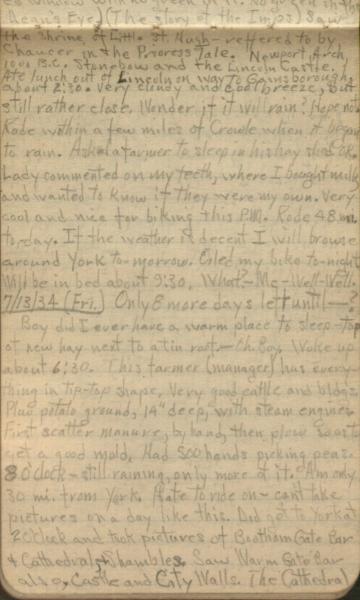 Dean's Eye) (The story of the Imps) Saw
the Shrine of Little St. Hugh - reffered to by
Chaucer in the Prioress Tale. Newport Arch,
100 B.C. Stonebow and the Lincoln Castle.
Ate lunch out of Lincoln on way to Gainsborough,
about 2:30. Very cloudy and cool breeze, but
still rather close. Wonder if it will rain? Hope not.
Rode within a few miles of Crowle when it began
to rain. Asked a farmer to sleep in his hay shed O.K.
Lady commented on my teeth, where I bought milk
and wanted to know if they were my own. Very
cool and nice for biking this P.M. Rode 48 mi.
today. If the weather is decent I will browse
around York to-morrow. Oiled my bike to-night
Will be in bed about 9:30. What - Me - Well - Well.
7/13/34 (Fri.) Only 8 more days left until —?
Boy did I ever have a warm place to sleep - top
of new hay next to a tin roof - Oh, Boy. Woke up
about 6:30. This farmer (manager) has every
thing in tip-top shape. Very good cattle and bldgs.
Plow potato ground, 14" deep, with steam engines
First scatter manure, by hand, then plow so as to
get a good mold. Had 500 hands picking peas.
8 O'clock - still raining, only more of it. Am only
30 mi. from York. Hate to ride on - can't take
pictures on a day like this. Did get to York at
2 O'clock and took pictures of Bootham Gate Bar
& Cathedral & Shambles. Saw Warm Gate Bar
also, Castle and City Walls. The Cathedral)